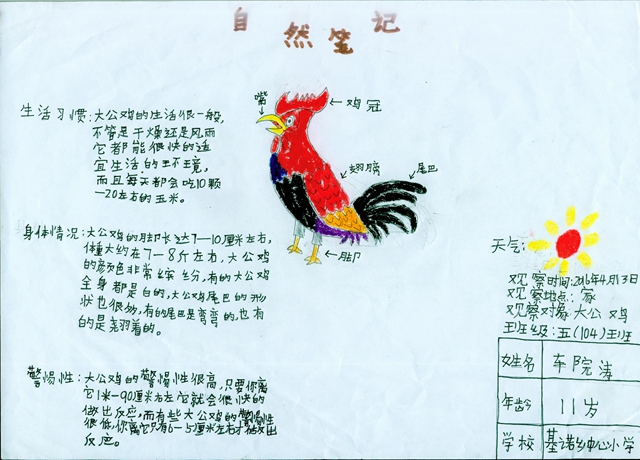 自然笔记
生活习惯:大公鸡的生活很一般,
不管是干燥还是风雨
它都能很快的适
宜生活的环境,
而且每天都会吃10颗
—20左右的玉米。
嘴
鸡冠
翅膀
尾巴
脚
身体情况:大公鸡的脚长达7—10厘米左右,
体重大约在7—8斤左右,大公鸡
的颜色非常缤纷,有的大公鸡
全身都是白的,大公鸡尾巴的形
状也很多,有的尾巴是弯弯的,也有
的是翘着的。
警惕性:大公鸡的警惕性很高,只要你离
它1米—90厘米左右它就会很快的
做出反应,而有些大公鸡的警惕性
很低,你离它只有6—5厘米左右才做出
反应。
天气:
观察时间:2016年4月13日
观察地点:家
观察对象大公鸡
班级:五(104)班
姓名 车院涛
年龄 11岁
学校 基诺乡中心小学